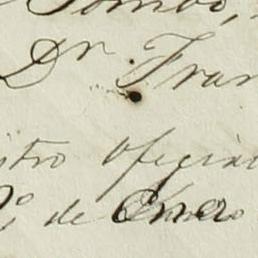 Dr. Fran
stro Oficial
de Enero